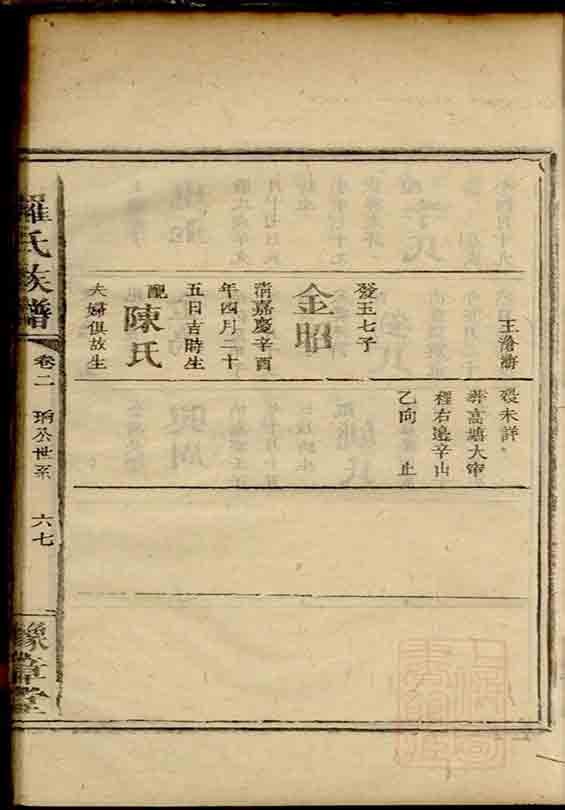 王滄海
發玉七子
金昭
清嘉慶辛酉
年四月二十
五日吉時生
配
陳氏
夫婦俱故生
歿未詳
葬高塘大窄
裡右邊辛山
乙向 止
羅氏族譜
卷二
公世系
六七
豫章堂